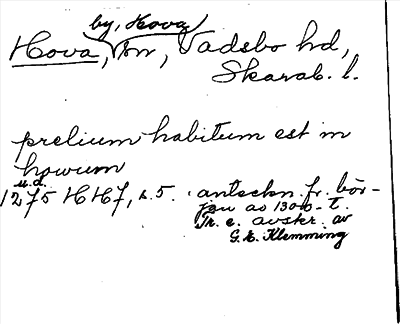 by, Hova
Hova, sn, Vadsbo hd,
Skarab. l.
prelium habitum est in
howum
u.d.
1275 HH7, s. 5. antechn. fr. bör-
jan av 1300-t.
Tr. e. avskr. av
G. E. Klemming